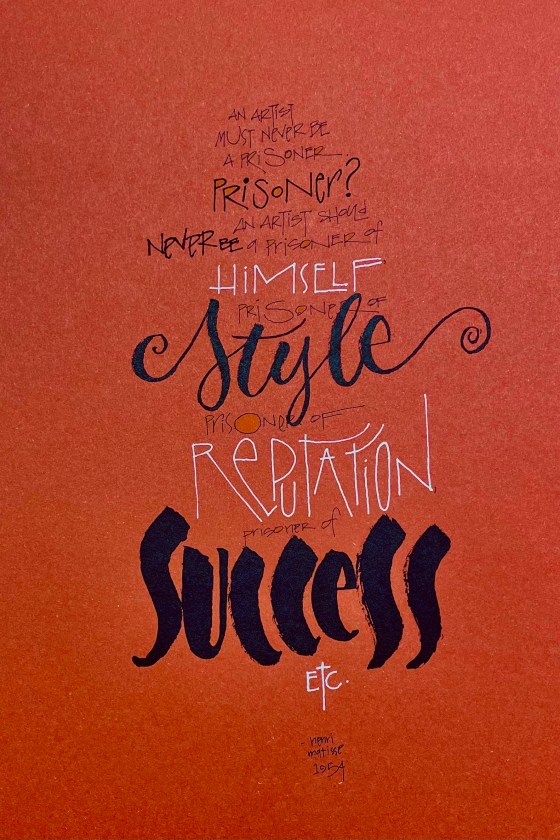 AN ARTIST
MUST NEVER BE
A PRISONER.
PRISONER?
AN ARTIST SHOULD
NEVER BE a PRISONER of
HIMSELF
PRISONER OF
Style
PRISONER OF
REPUTATION
prisoner of
Success
ETC.
- henri
matisse
1954